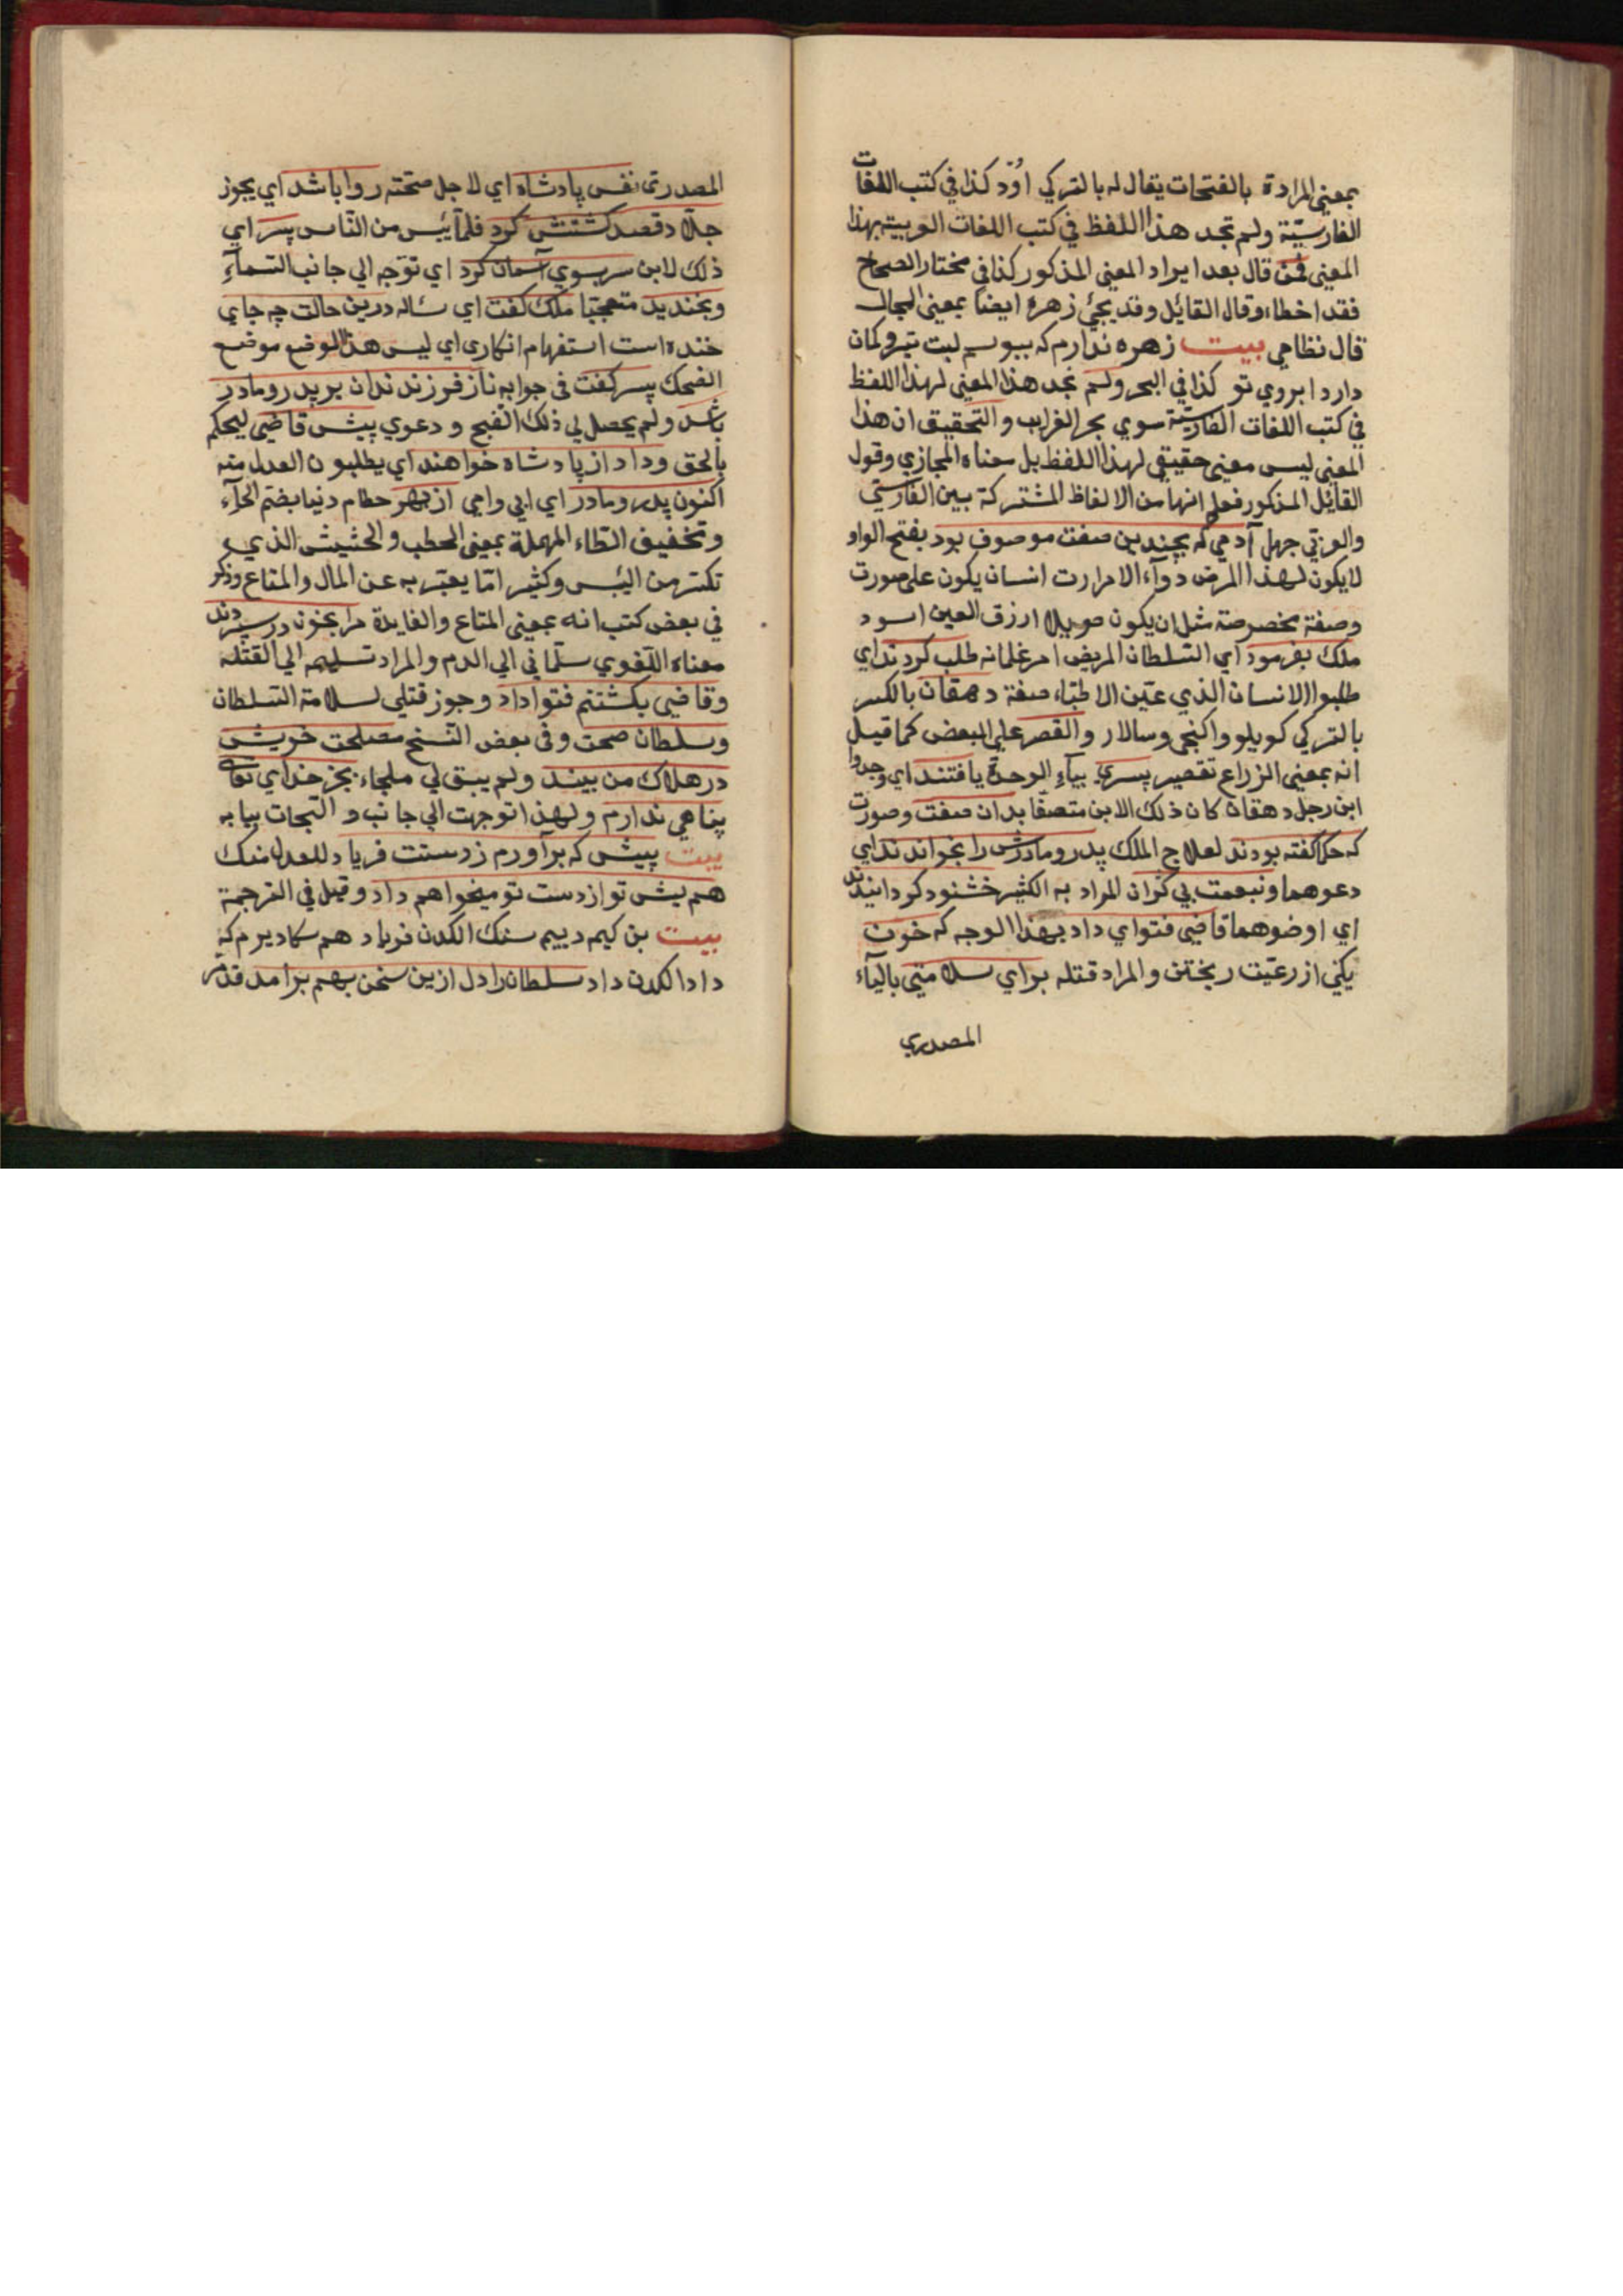 بمعنى المرادة بالفتحات يقال له بالتركي اود كذا في كتب اللغات
الفارسيّة ولم تجد هذا اللفظ في كتب اللغات العربيية بهذا
المعنى فمن قال بعد ايراد المعنى المذكور كذا في مختار الصحاح
فقد اخطاء وقال القائل وقد يجئ زهره ايضا بمعنى المجال
قال نظامي بيت زهره ندارم كه ببوسم لبت تير وكمان
دارد ابروي تو كذا في البحر ولم نجد هذا المعنى لهذا اللفظ
في كتب اللغات الفارسيّة سوي بحر الغرايب و التحقيق ان هذا
المعنى ليس معنى حقيقي لهذا اللفظ بل معناه المجازي وقول
القائل المذكور فعلم انها من الالفاظ المشتركة بين الفارسيّ
والعربي جهل آدمي كه بچندين صفت موصوف بود بفتح الواو
لايكون لهذا المرض دوآء الا مرارت انسان يكون على صورت
وصفة مخصوصة مثل ان يكون طويلا ازرق العين اسود
ملك بفرمود اي السلطان المريض امر غلمانه طلب كردند اي
طلبوا الانسان الذي عيّن الاطبّاء صفة دهقان بالكسر
بالتركي كويلو واكنجى وسالار والقصر على البعض كما قيل
انه بمعنى الزراع تقصير پسري بياء الوحدة يافتند اي وجدوا
ابن رجل دهقان كان ذلك الابن متصفا بدان صفت وصورت
كه حكما كفته بودند لعلاج الملك پدر ومادرش را بخواندند اي
دعوهما وبنعمت بي كران المراد به الكثير خشنود كردانيدند
اي ارضوهما قاضى فتواي داد بهذا الوجه كه خون
يكي از رعيّت ريختن والمراد قتله براي سلامتى بالياء
المصدري
المصدرى نفس پادشاه اي لاجل صحّته روا باشد اي يجوز
جلاد قصد كشتنش كرد فلمّا يئس من النّاس پسر اي
ذلك لابن سر بسوي آسمان كرد اي توجّه الي جانب السّمآء
وبخنديد متعجّبا ملك كفت اي سأله درين حالت چه جاي
خنده است استفهام انكارى اي ليس هذا الوضع موضع
الضحك پسر كفت في جوابه ناز فرزندان بر پدر ومادر
باشد ولم يحصل لي ذلك القبح و دعوي پيش قاضى ليحكم
بالحق وداد از پادشاه خواهند اي يطلبون العدل منه
اكنون پدر ومادر اي ابي وامي از بهر حطام دنيا بضم الحآء
وتخفيف الطاء المهملة بمعنى الحطب والحشيش الذي
تكسّر من اليبس وكثيرا ممّا يعبّر به عن المال والمتاع وذكر
في بعض كتب انه بمعنى المتاع والفايدة مرا بخون در سپردند
معناه اللغوي سلّماني الي الدم والمراد تسليمه الي القتله
وقاضى بكشتنم فتوا داد وجوز قتلي لسلامة السلطان
وسلطان صحت وفي بعض النّسخ مصلحت خويش
در هلاك من بيند ولم يبق لي ملجاء بجز خداي تعالى
پناهي ندارم ولهذا توجهت الي جانب و التجات ببابه
بيت پيش كه برآورم زدستت فرياد للعدل منك
هم پيش تو از دست تو ميخواهم داد وقيل في الترجمة
بيت بن كيمه دييم سنك الكدن فرياد هم سكا ديرم كه
داد الكدن داد سلطانرا دل ازين سخن بهم برامد قدم